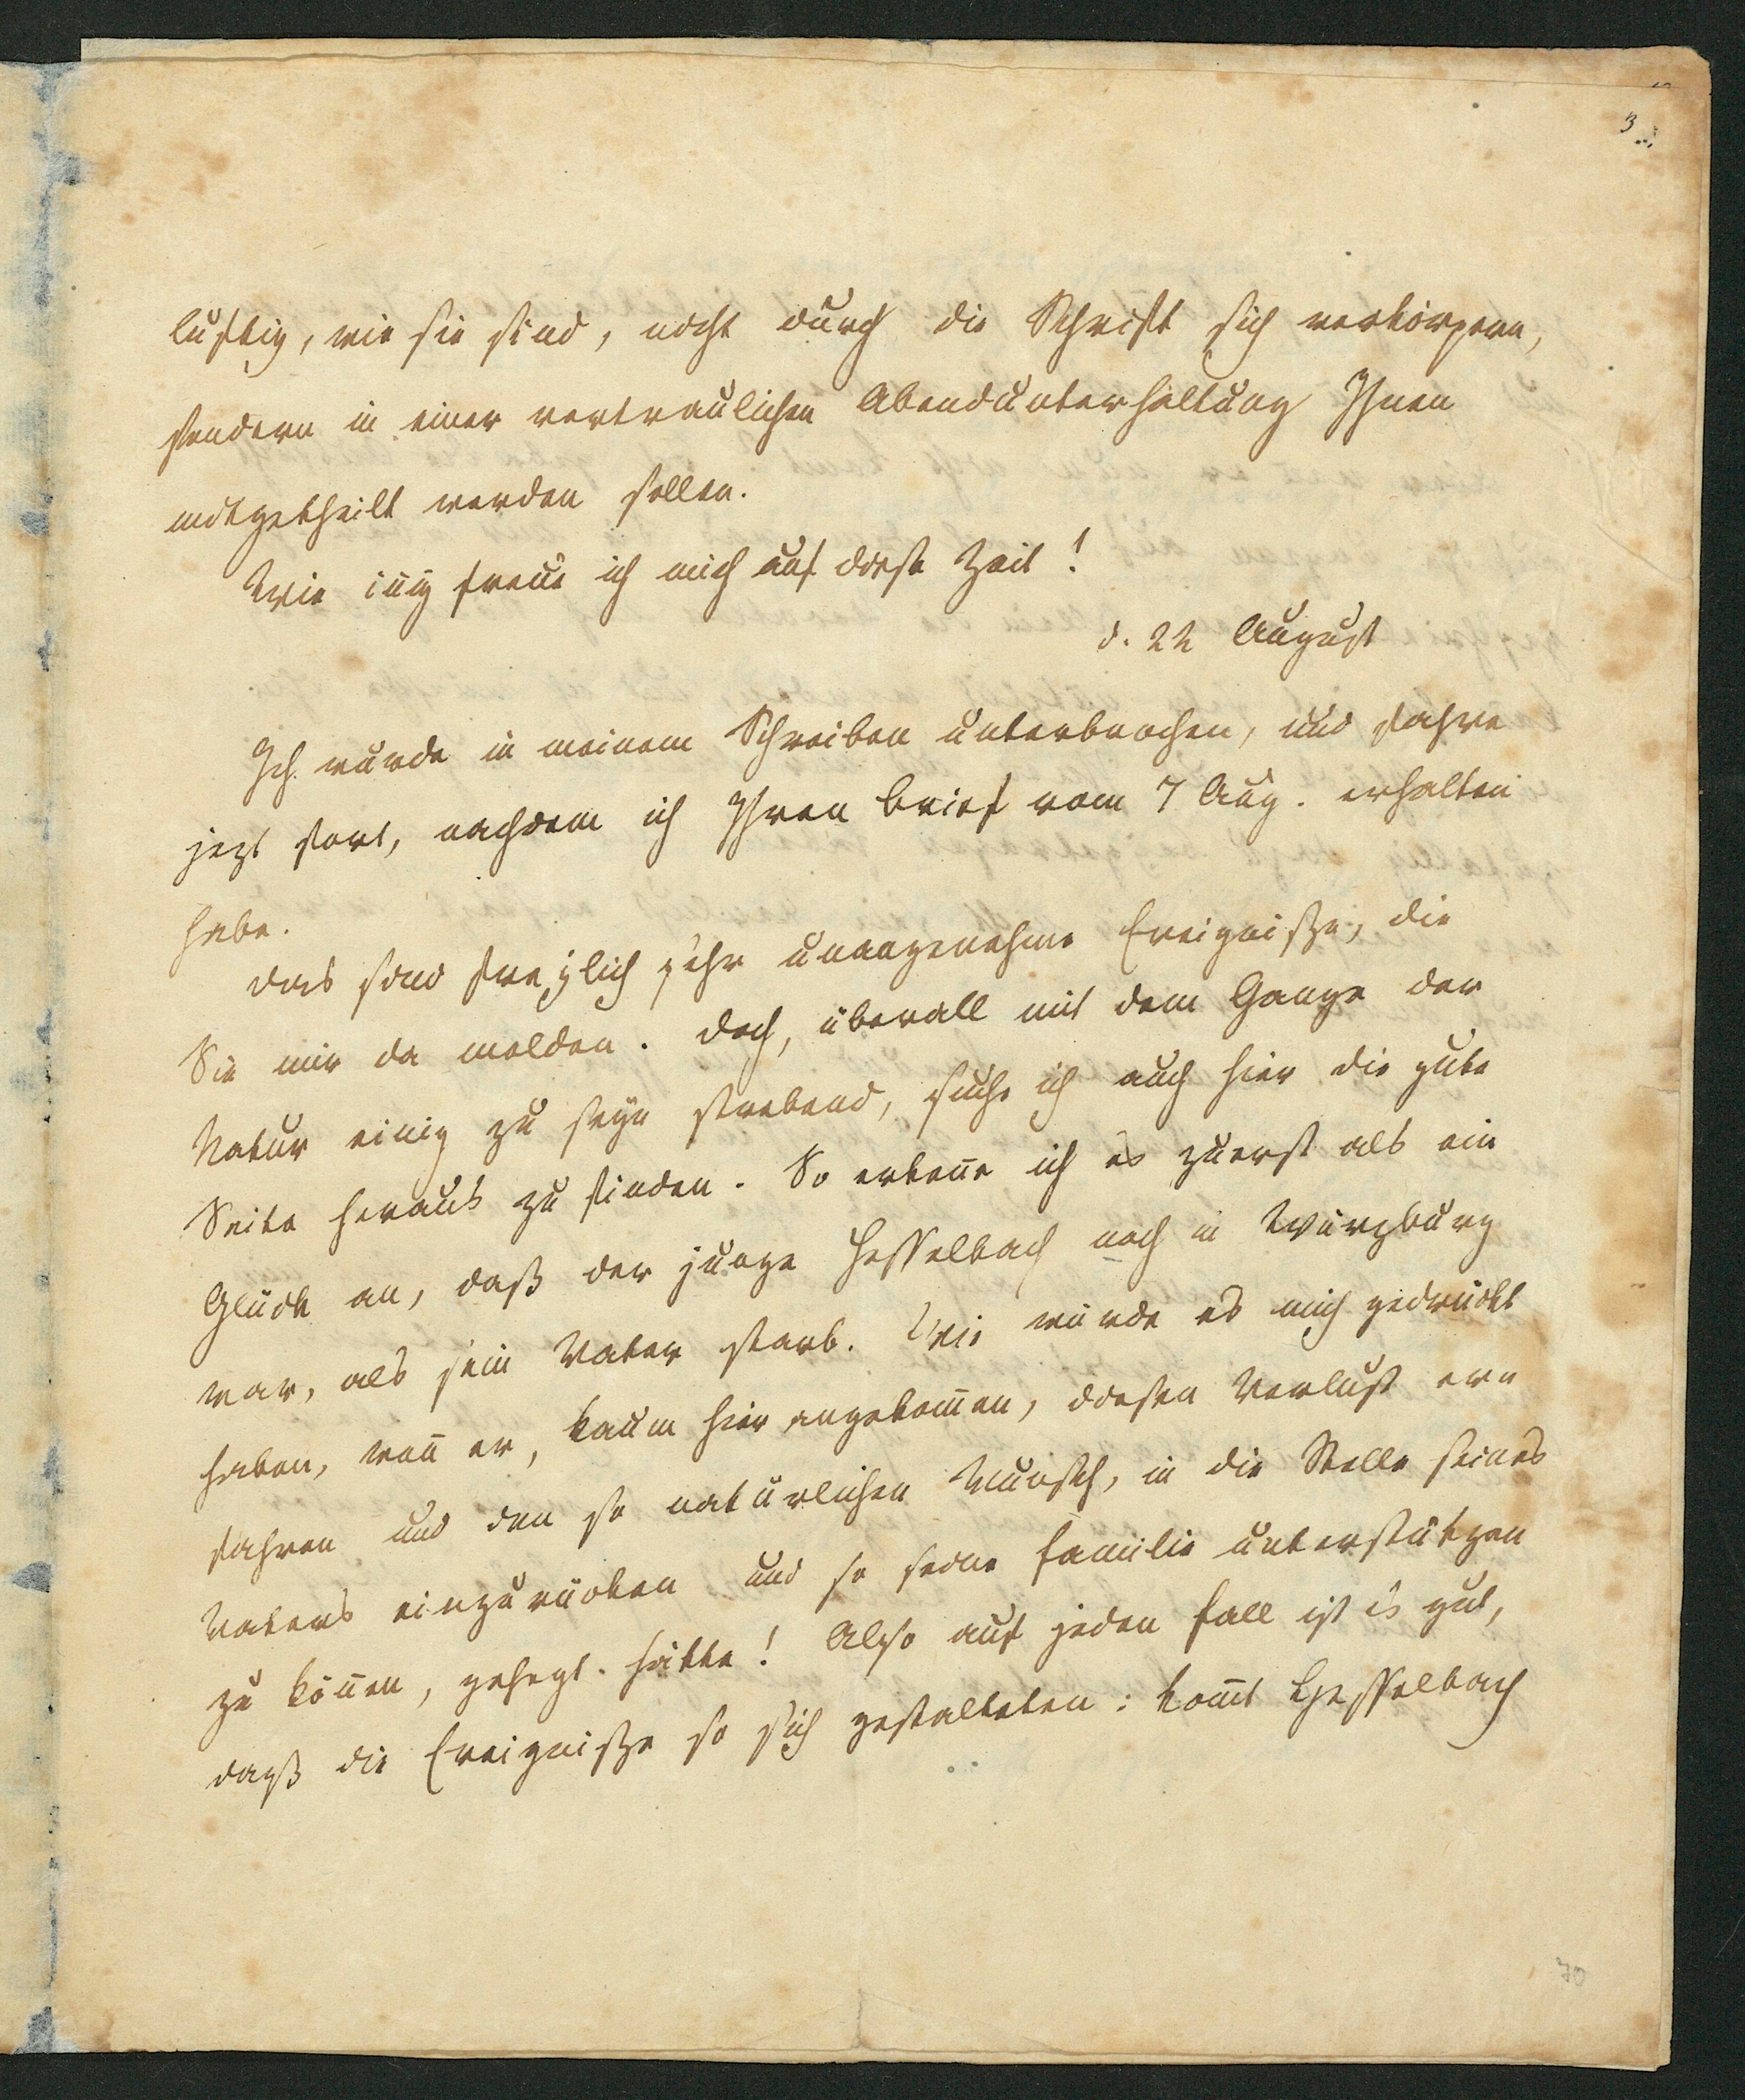 3
luftig, wie sie sind, nicht durch die Schrift sich verkörpern,
sondern in einer vertraulichen Abendunterhaltung Ihnen
mitgetheilt werden sollen.
Wie innig freue ich mich auf diese Zeit!
d. 22 August
Ich wurde in meinem Schreiben unterbrochen, und fahre
jezt fort, nachdem ich Ihren Brief vom 7 Aug. erhalten
habe.
Das sind freylich sehr unangenehme Ereigniße, die
Sie mir da melden. Doch, überall mit dem Gange der
Natur einig zu seyn strebend, suche ich auch hier die gute
Seite heraus zu finden. So erkenne ich es zuerst als ein
Glück an, daß der junge Hesselbach noch in Würzburg
war, als sein Vater starb. Wie würde es mich gedrückt
haben, wenn er, kaum hier angekommen, diesen Verlust er=
fahren und den so natürlichen Wunsch, in die Stelle seines
Vaters einzurücken und so seine Familie unterstützen
zu können, gehegt hätte! Also auf jeden Fall ist es gut,
daß die Ereigniße so sich gestalteten: kommt Hesselbach
70